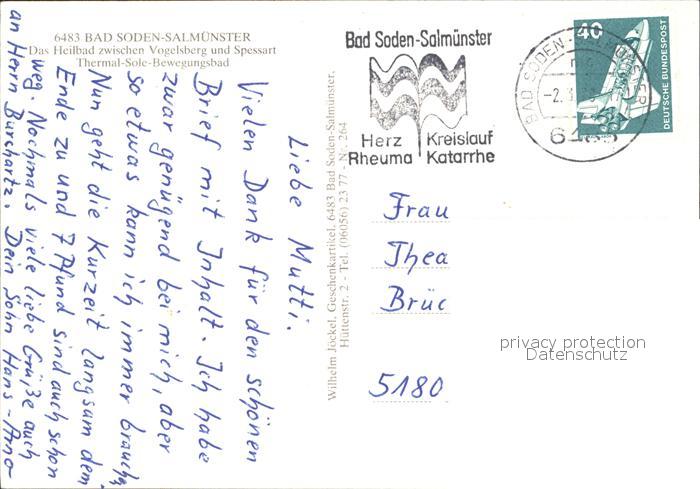 6483 BAD SODEN-SALMÜNSTER
Das Heilbad zwischen Vogelsberg und Spessart
Thermal-Sole-Bewegungsbad
Liebe Mutti.
Vielen Dank für den schönen
Brief mit Inhalt. Ich habe
zwar genügend bei mich, aber
so etwas kann ich immer brauchen
Nun geht die Kurzeit langsam dem
Ende zu und 7 Pfund sind auch schon
weg. Nochmals viele liebe Grüße auch
an Herrn Burchartz. Dein Sohn Hans-Arno
Wilhelm Jöckel, Geschenkartikel, 6483 Bad Soden-Salmünster,
Hüttenstr. 2 - Tel. (06056) 23 77 - Nr. 264
Bad Soden-Salmünster
Herz Kreislauf
Rheuma Katarrhe
BAD SODEN-SALMÜNSTER
40
DEUTSCHE BUNDESPOST
Frau
Thea
Brüc
5180
privacy protection
Datenschutz